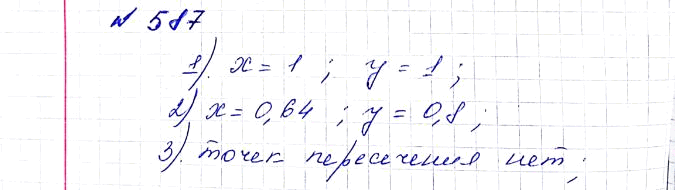 № 587
1). x = 1 ; y = 1 ;
2) x = 0,64 ; y = 0,8 ;
3). точек пересечения нет ;